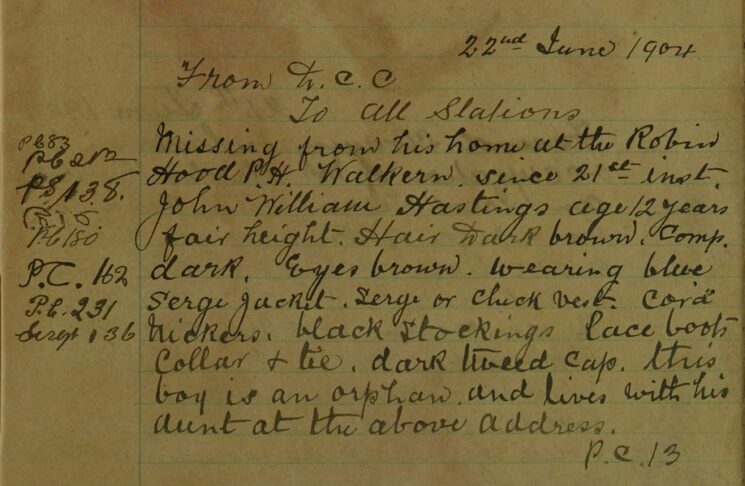 22nd June 1904
From D. C. C
To All Stations
Missing from his home at the Robin
Hood P.H. Walkern. since 21st inst.
John William Hastings age 12 years
fair height. Hair Dark brown. Comp.
dark. Eyes brown. wearing blue
Serge Jacket. Serge or Check Vest. Cord
Nickers. black Stockings lace boots
Collar & tie. dark tweed Cap. this
boy is an orphan. and lives with his
Aunt at the above address.
P.C. 13
PC 83
PC 212
PS/138.
PC 180
P.C. 162
P.C. 231
Sergt 136